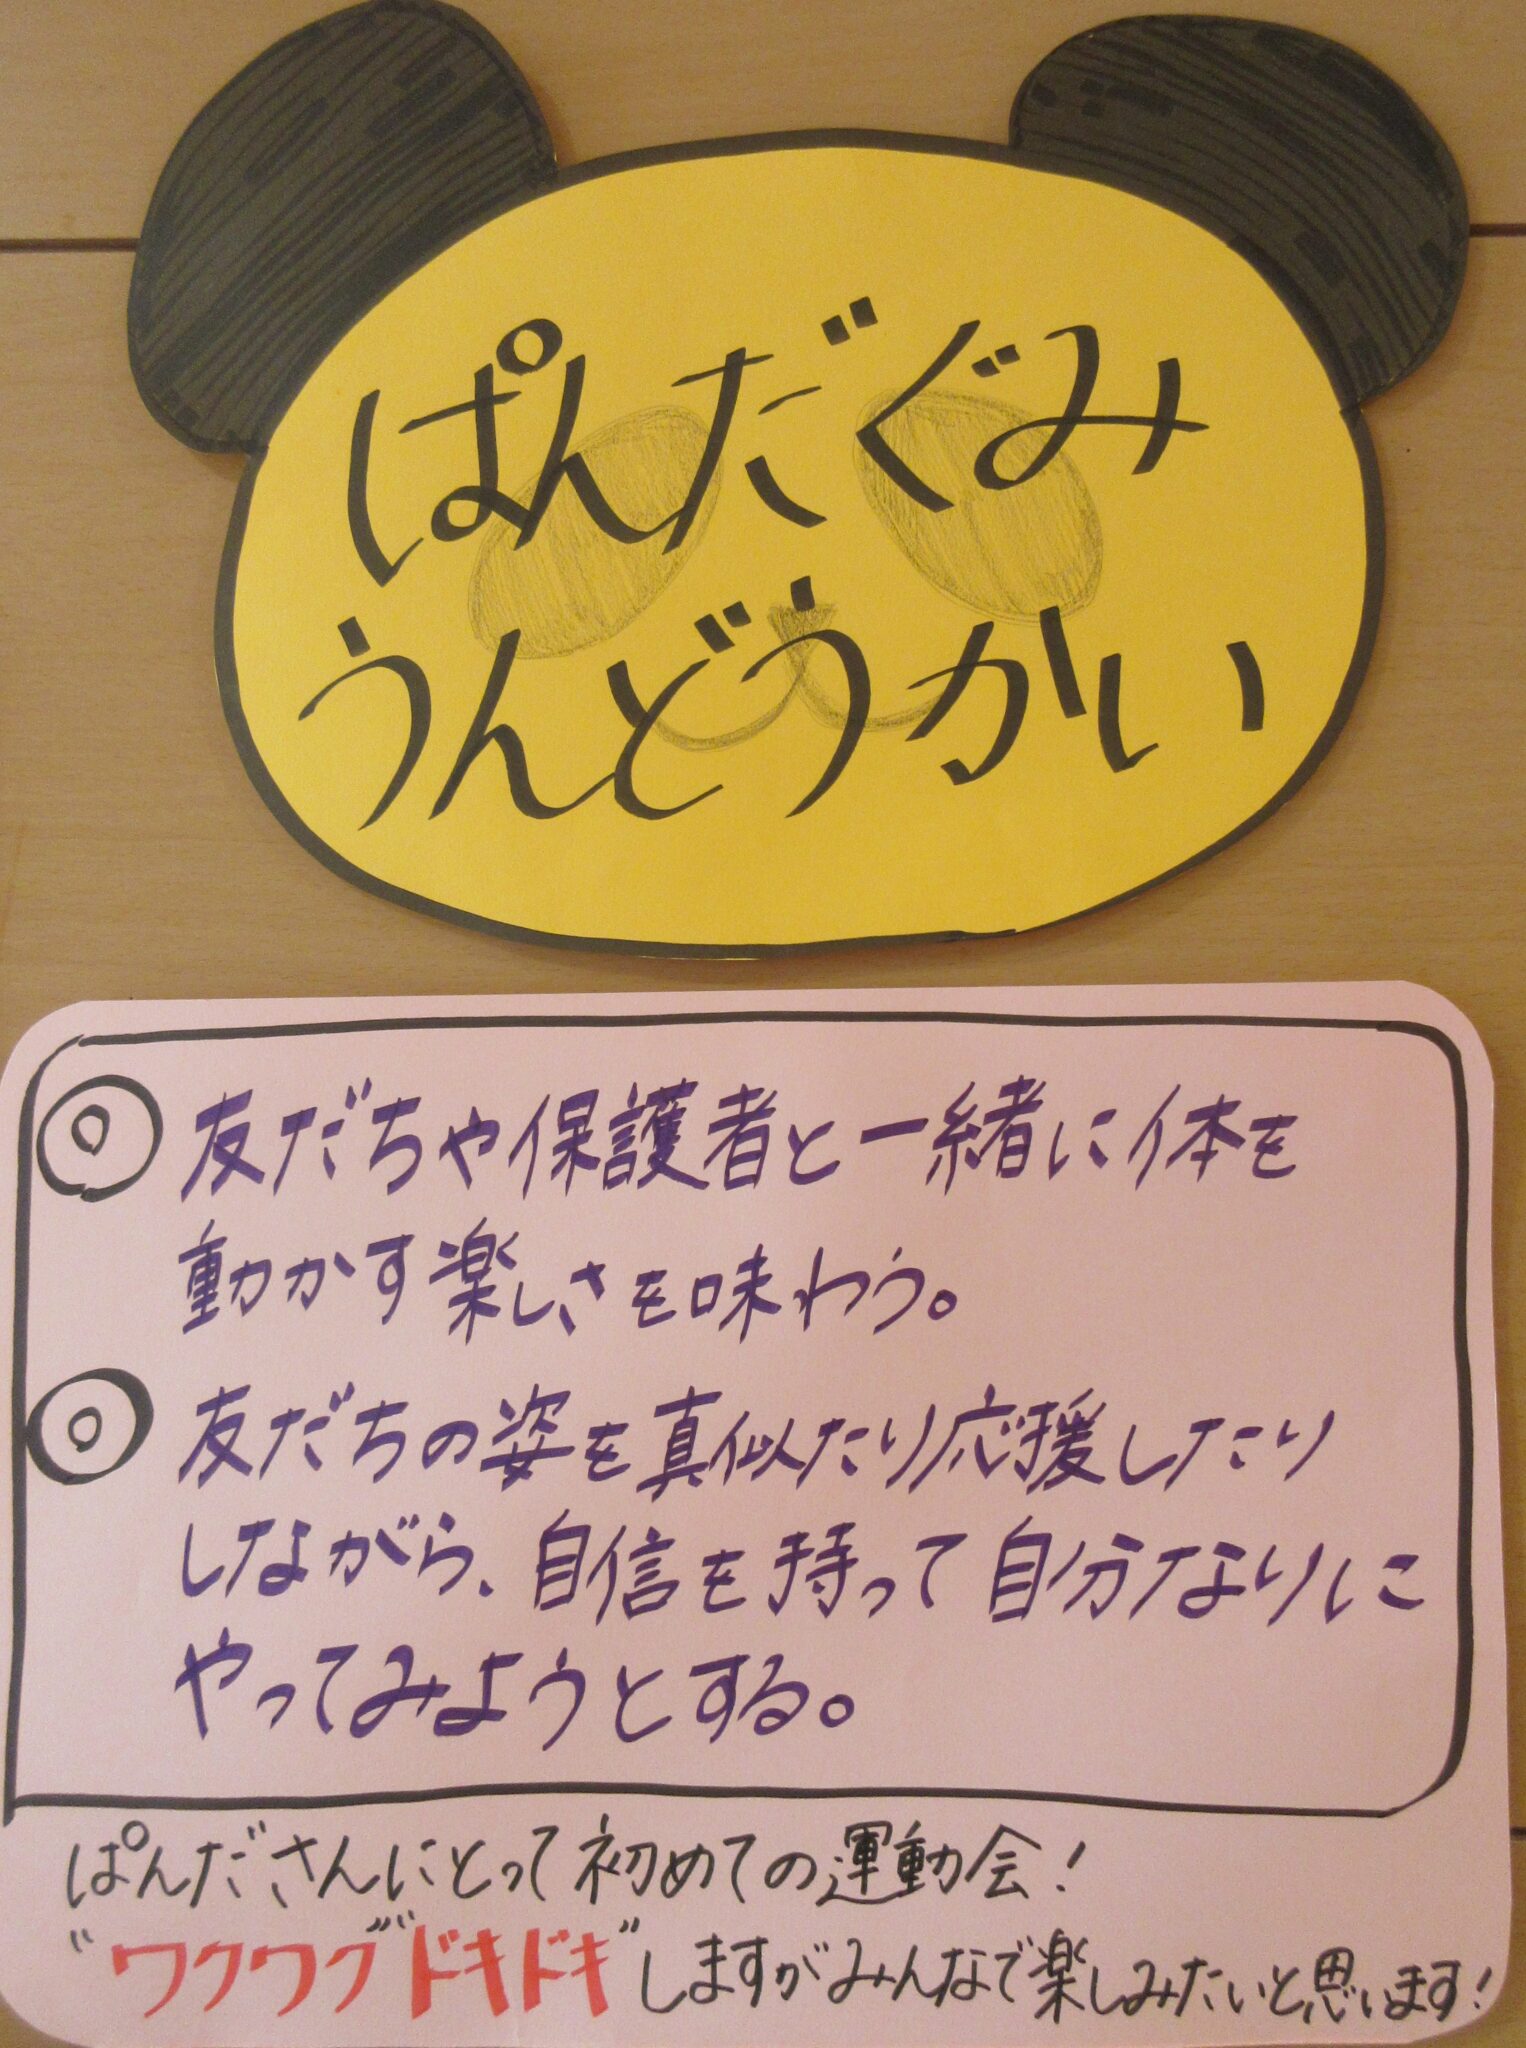 ぱんだぐみ
うんどうかい
◎ 友だちや保護者と一緒に体を
動かす楽しさを味わう。
◎ 友だちの姿を真似たり応援したり
しながら、自信を持って自分なりに
やってみようとする。
ぱんださんにとって初めての運動会!
"ワクワク""ドキドキ"しますがみんなで楽しみたいと思います!